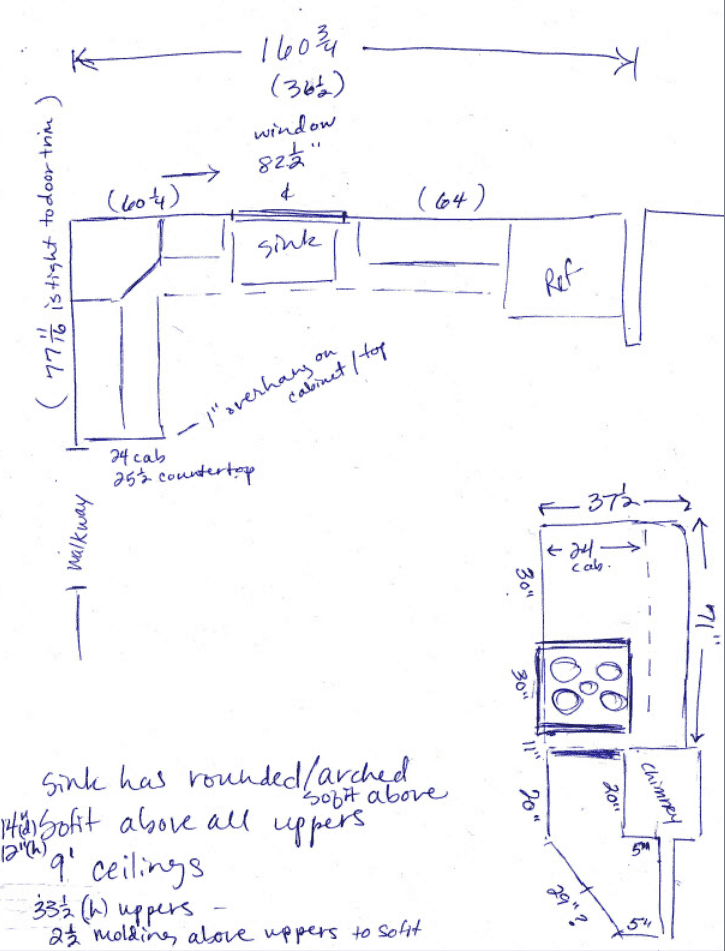 160 3/4
(36 1/2)
window
82 1/2"
¢
(60 1/4)
(64)
sink
Ref
(77 11/16 is tight to door trim)
1" overhang on
cabinet/top
24 cab
25 1/2 countertop
walkway
37 1/2
24
cab.
30"
71"
30"
11"
20"
20"
chimney
5"
29"?
5"
sink has rounded/arched
sofit above
14"(d) Sofit above all uppers
12"(h)
9' ceilings
33 1/2 (h) uppers -
2 1/2 molding above uppers to sofit